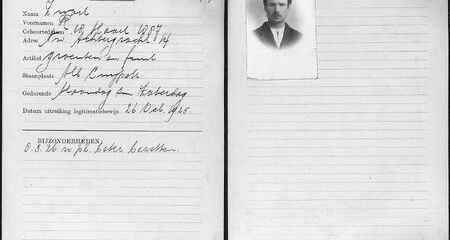 Naam Zwart
Voornamen
Geboortedatum 19 Maart 1887
Adres Nw Achtergracht 14
Artikel groenten en fruit
Staanplaats Alb. Cuypstr.
Gedurende Maandag en Zaterdag
Datum uitreiking legitimatiebewijs 26 Oct. 1925.
BIJZONDERHEDEN
26 pl. beter bezetten.